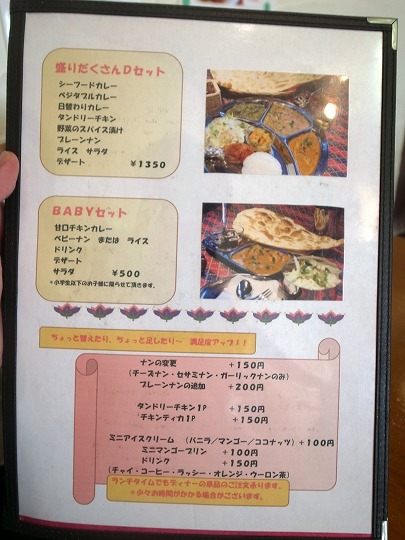 盛りだくさんDセット
シーフードカレー
ベジタブルカレー
日替わりカレー
タンドリーチキン
野菜のスパイス漬け
プレーンナン
ライス サラダ
デザート ¥1350
BABYセット
甘口チキンカレー
ベビーナン または ライス
ドリンク
デザート
サラダ ¥500
*小学生以下のお子様に限らせて頂きます。
ちょっと替えたり、ちょっと足したり~ 満足度アップ!!
ナンの変更 +150円
(チーズナン・セサミナン・ガーリックナンのみ)
プレーンナンの追加 +200円
タンドリーチキン1P +150円
チキンティカ1P +150円
ミニアイスクリーム (バニラ/マンゴー/ココナッツ) +100円
ミニマンゴープリン +100円
ドリンク +150円
(チャイ・コーヒー・ラッシー・オレンジ・ウーロン茶)
ランチタイムでもディナーの単品のご注文承ります。
*少々お時間がかかる場合がございます。